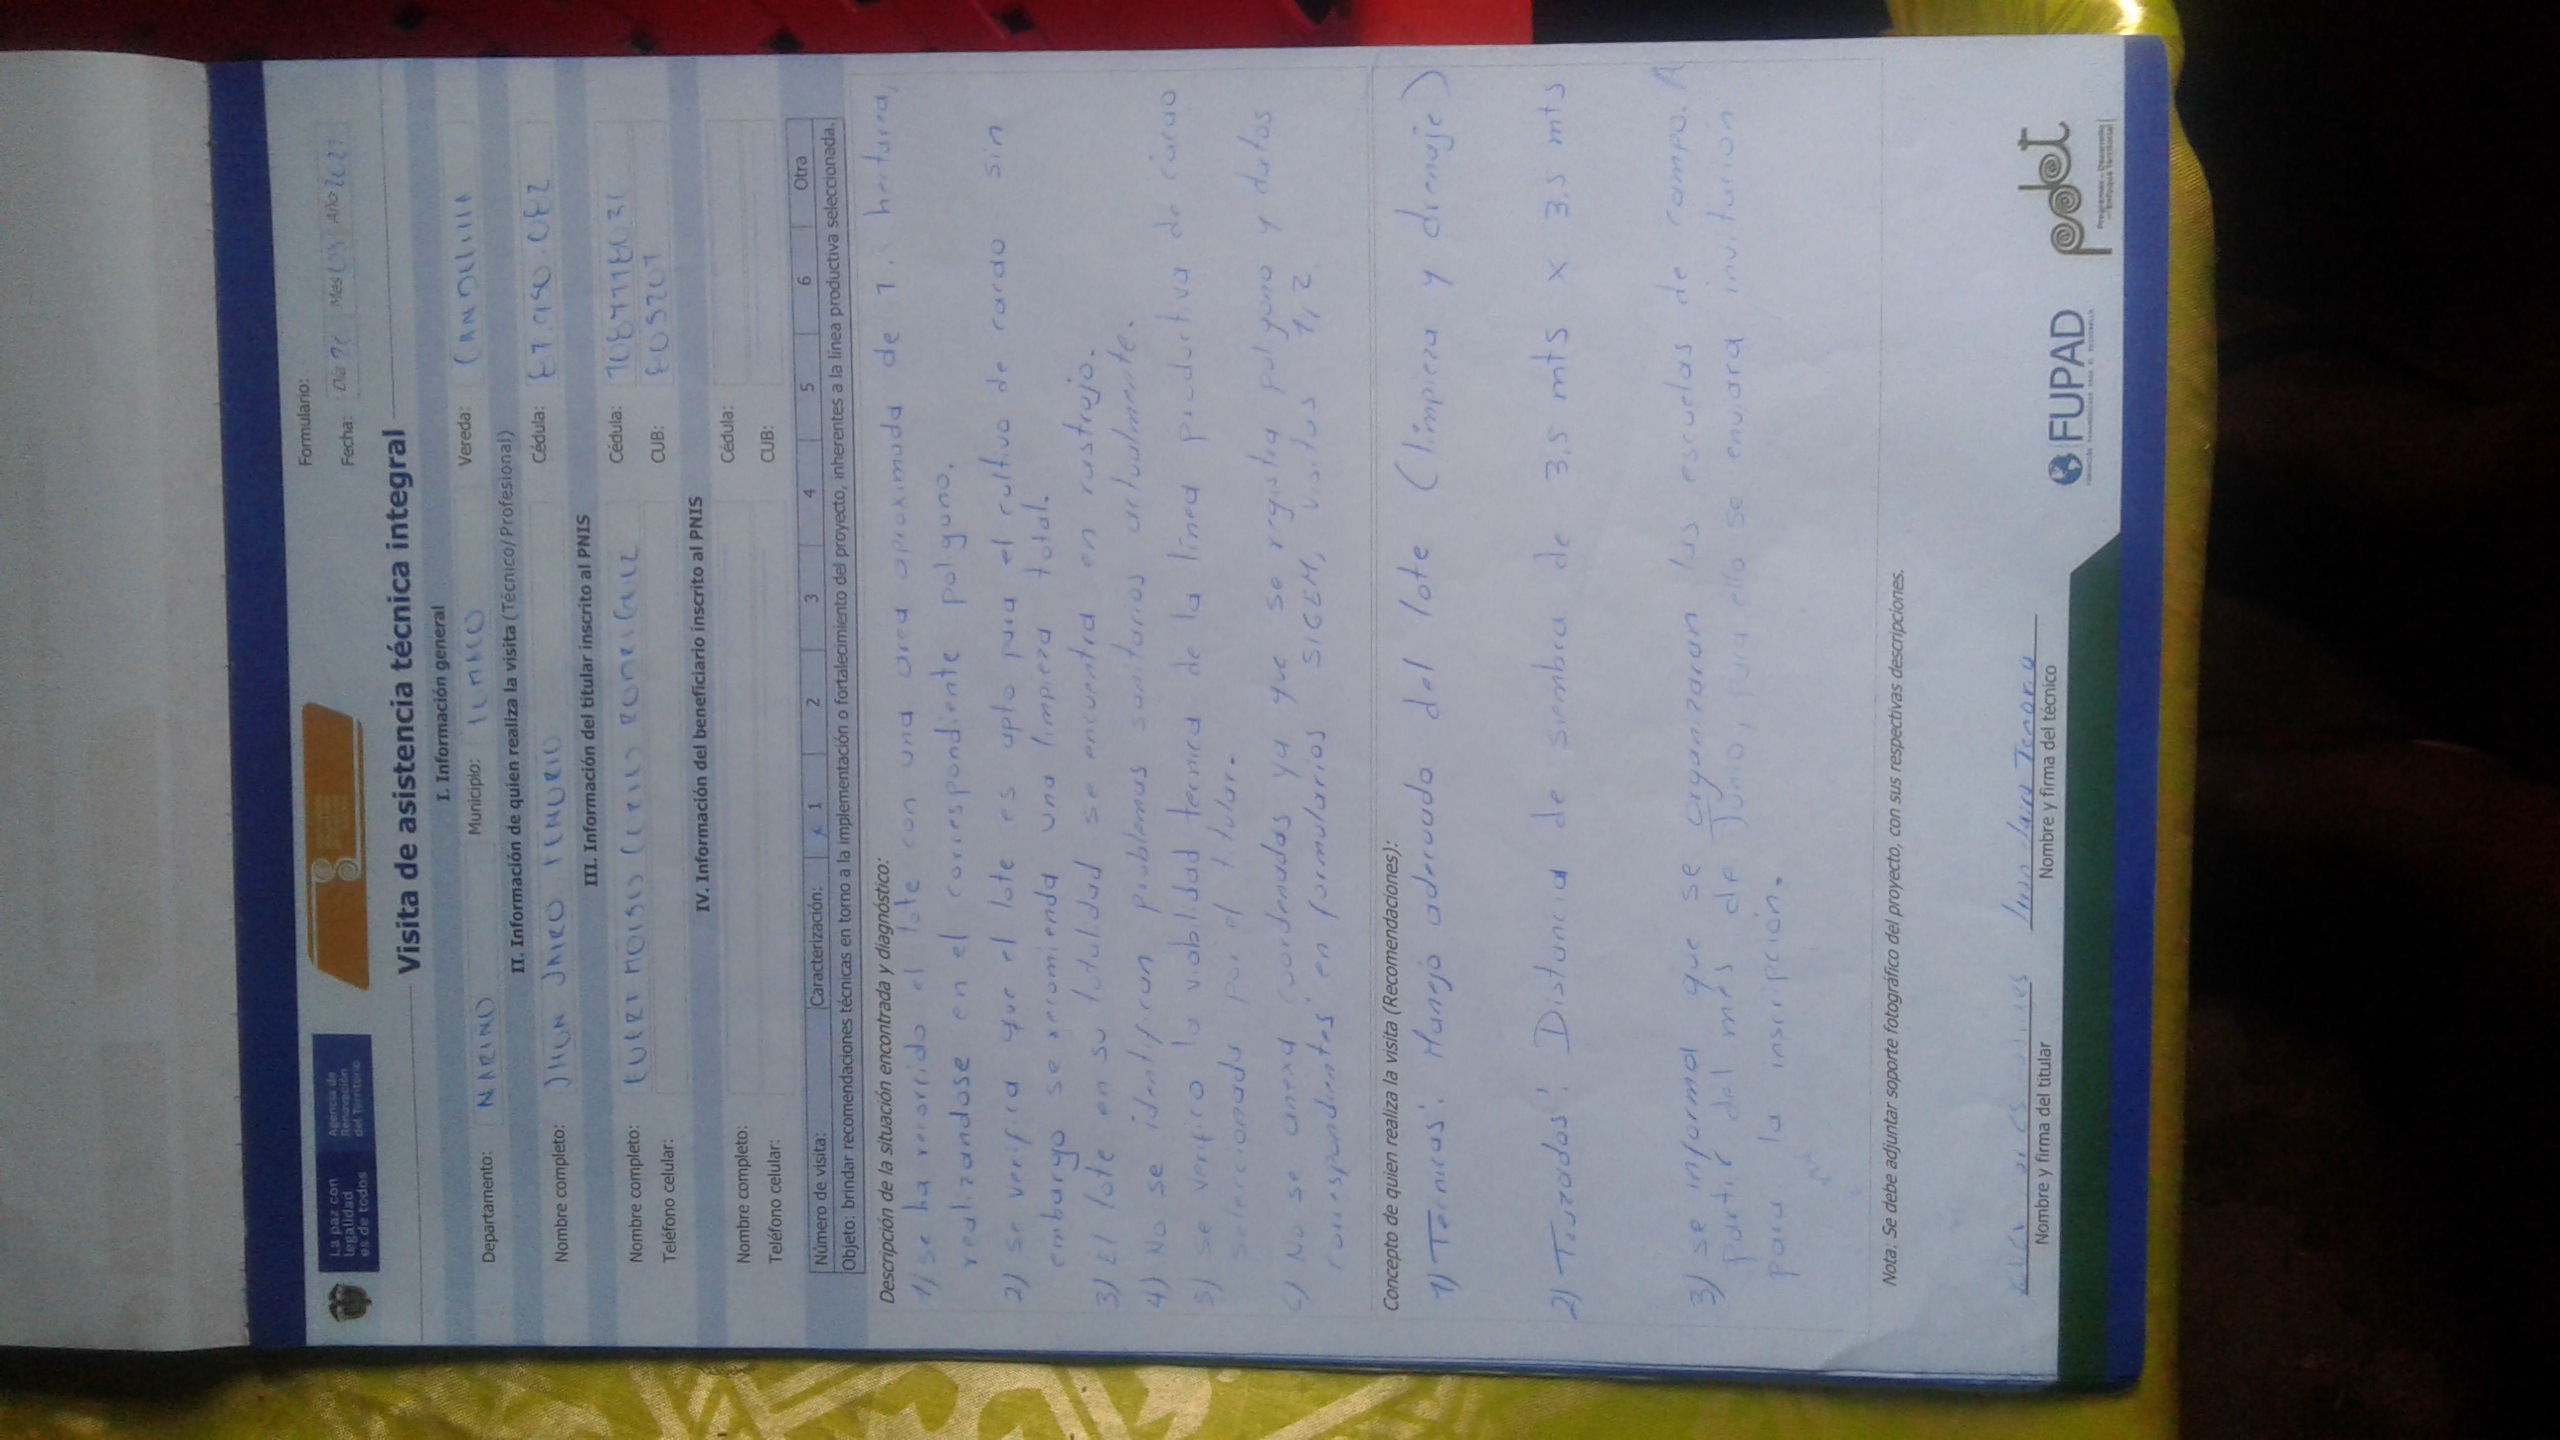 La paz con
legalidad
es de todos
Agencia de
Renovación
del Territorio
Formulario:
Fecha: Día Mes 05 Año 2021
Visita de asistencia técnica integral
I. Información general
Departamento: NARIÑO Municipio: TUMACO Vereda: CANDELILLA
II. Información de quien realiza la visita (Técnico/Profesional)
Nombre completo: JHON JAIRO TENORIO Cédula: 87.950.082
III. Información del titular inscrito al PNIS
Nombre completo: MOISES RODRIGUEZ Cédula:
Teléfono celular: CUB:
IV. Información del beneficiario inscrito al PNIS
Nombre completo: Cédula:
Teléfono celular: CUB:
Número de visita: Caracterización: x 1 2 3 4 5 6 Otra
Objeto: brindar recomendaciones técnicas en torno a la implementación o fortalecimiento del proyecto, inherentes a la línea productiva seleccionada.
Descripción de la situación encontrada y diagnóstico:
1) se ha recorrido el lote con una area aproximada de hectarea,
realizandose en el correspondiente poligono.
2) se verifica que el lote es apto para el cultivo de cacao sin
embargo se recomienda una limpieza total.
3) El lote en su totalidad se encuentra en rastrojo.
4) No se identifican problemas sanitarios actualmente.
5) se verifico la viabilidad tecnica de la linea productiva de cacao
seleccionada por el titular.
6) No se anexa coordenadas ya que se registra poligono y datos
correspondientes en formularios SIGEM, visitas 1, 2.
Concepto de quien realiza la visita (Recomendaciones):
1) Tecnicas: Manejo adecuado del lote (limpieza y drenaje)
2) Trazados: Distancia de siembra de 3,5 mts x 3,5 mts
3) se informa que se organizaran las escuelas de campo. A
partir del mes de Junio, para ello se enviara invitacion
para la inscripción.
Nota: Se debe adjuntar soporte fotográfico del proyecto, con sus respectivas descripciones.
Jhon Jairo Tenorio
Nombre y firma del titular Nombre y firma del técnico
FUPAD
pdet
Programas de Desarrollo
con Enfoque Territorial